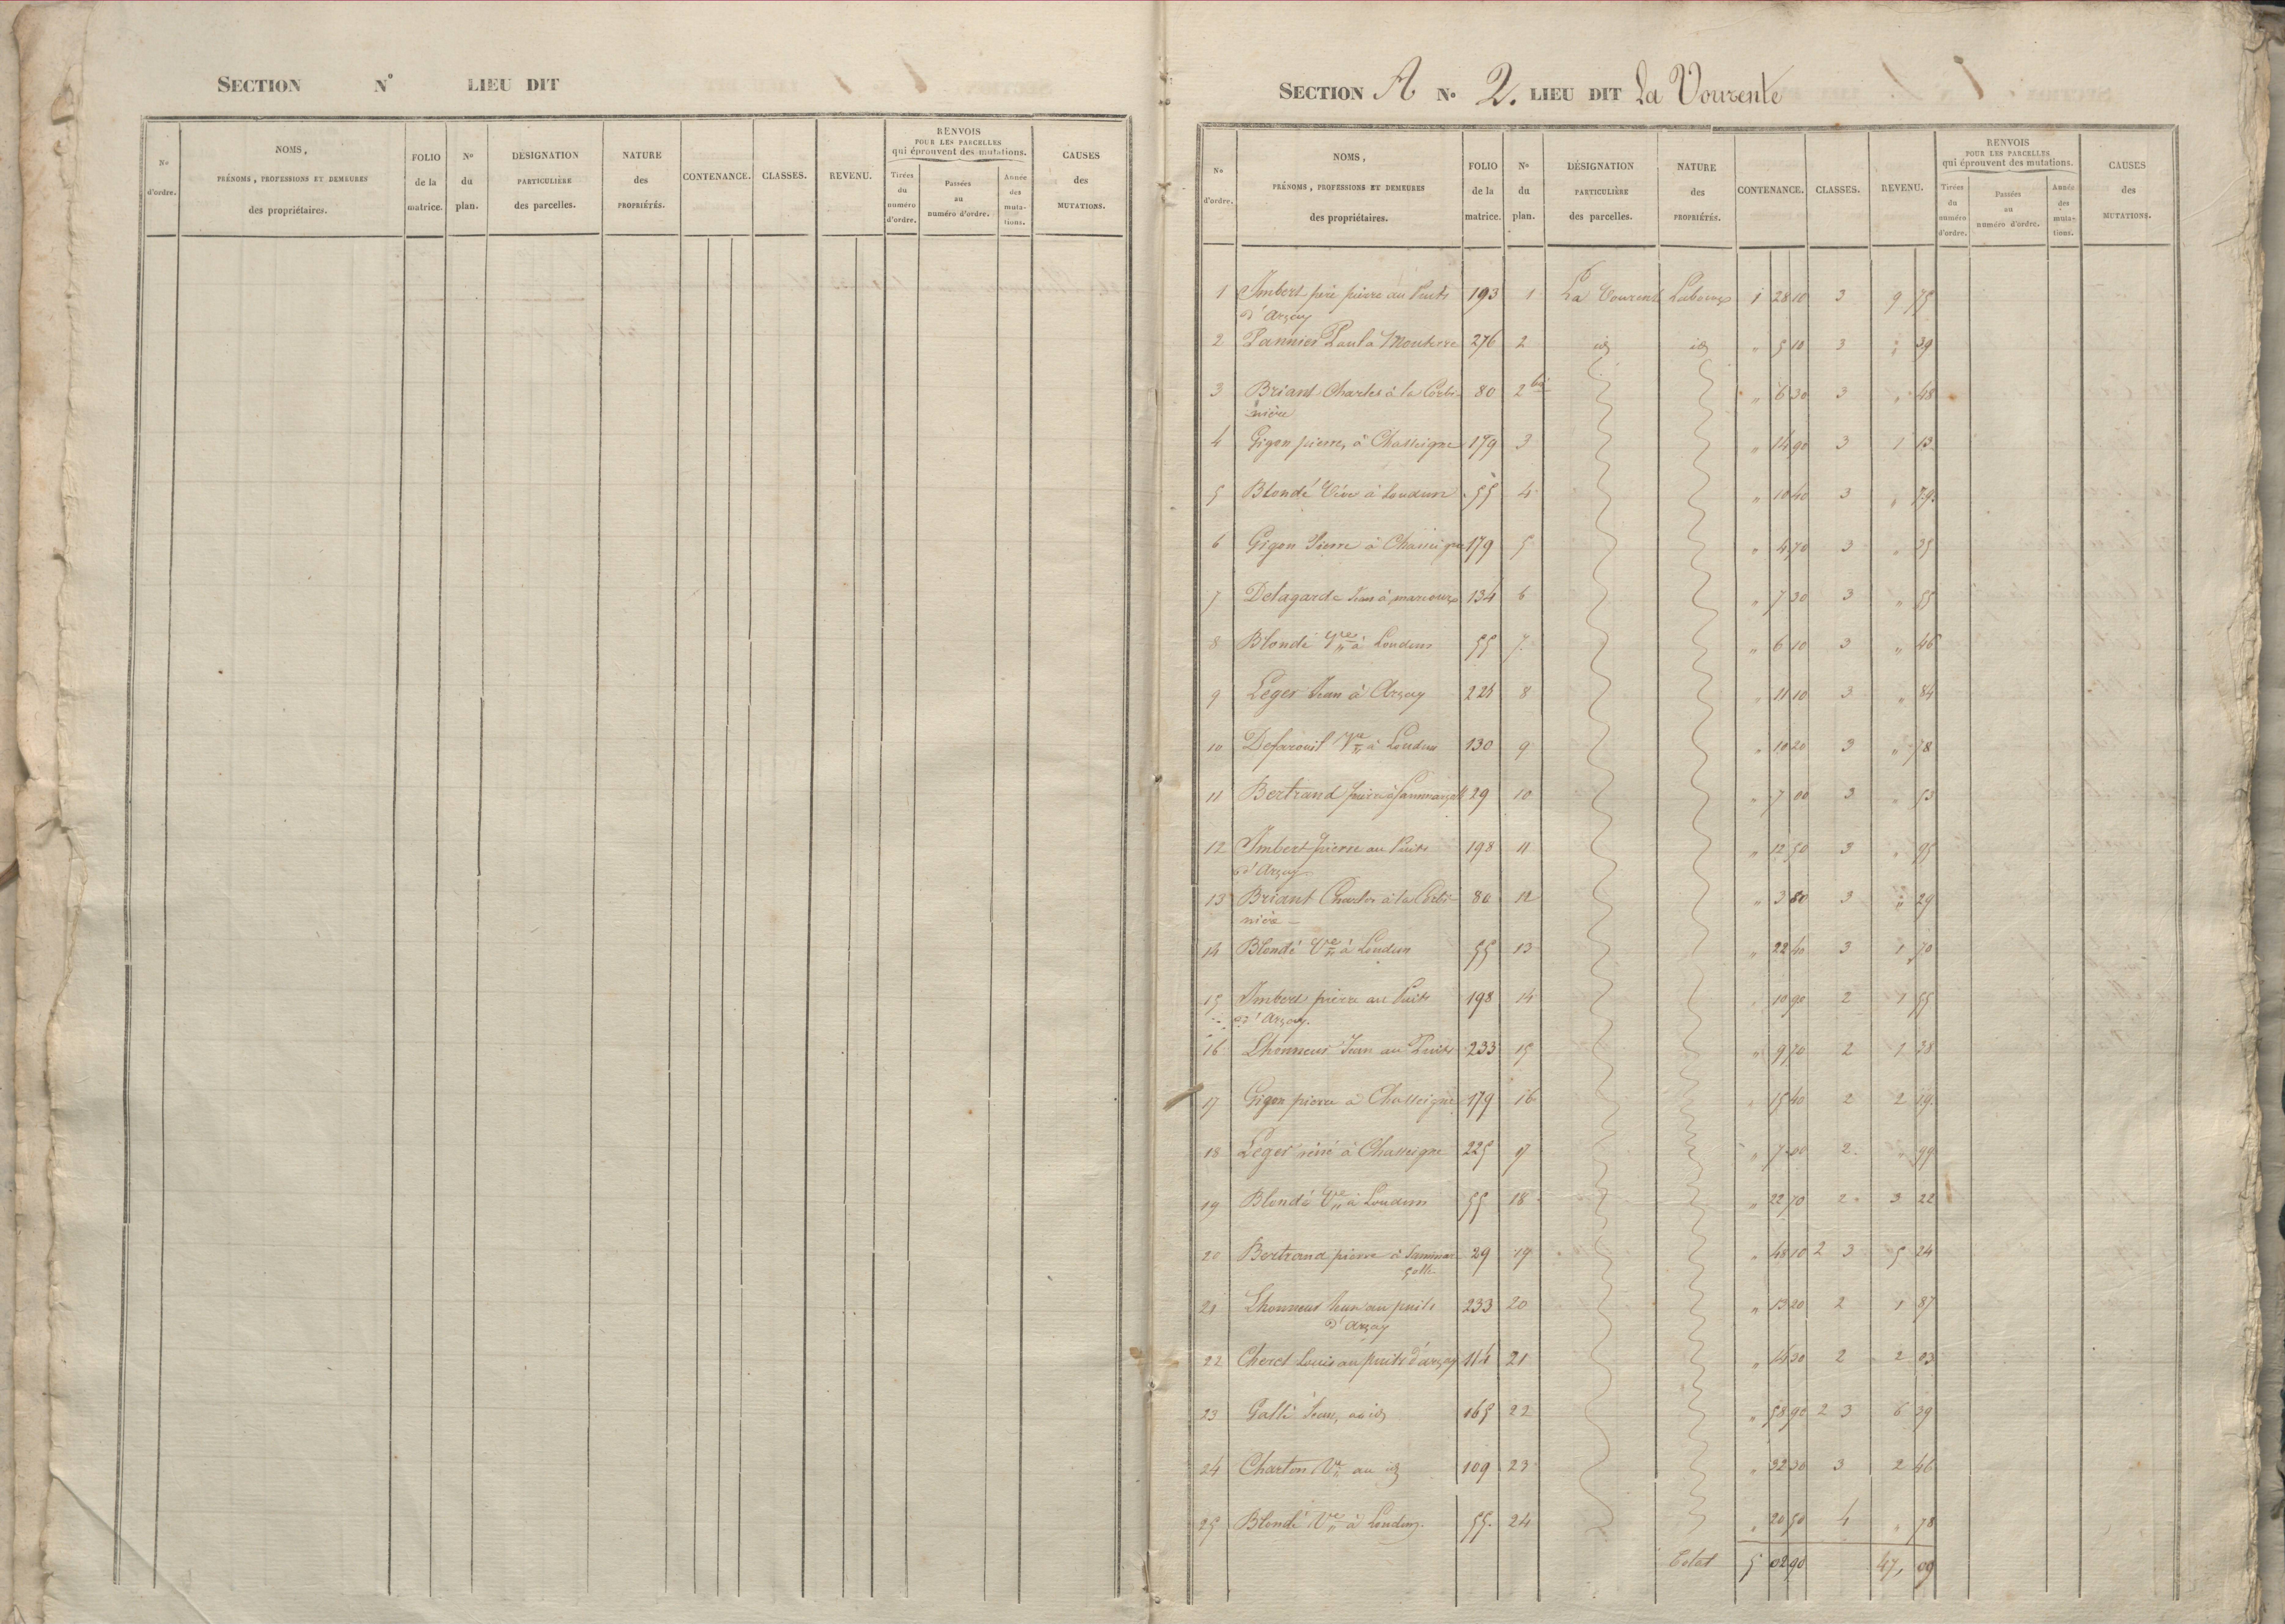 SECTION N° LIEU DIT
No d'ordre. NOMS, PRÉNOMS, PROFESSIONS ET DEMEURES des propriétaires. FOLIO de la matrice. No du plan. DÉSIGNATION PARTICULIÈRE des parcelles. NATURE des PROPRIÉTÉS. CONTENANCE. CLASSES. REVENU. RENVOIS POUR LES PARCELLES qui éprouvent des mutations. Tirées du numéro d'ordre. Passées au numéro d'ordre. Année des mutations. CAUSES des MUTATIONS.
SECTION A No 2. LIEU DIT La Vourente
No d'ordre. NOMS, PRÉNOMS, PROFESSIONS ET DEMEURES des propriétaires. FOLIO de la matrice. No du plan. DÉSIGNATION PARTICULIÈRE des parcelles. NATURE des PROPRIÉTÉS. CONTENANCE. CLASSES. REVENU. RENVOIS POUR LES PARCELLES qui éprouvent des mutations. Tirées du numéro d'ordre. Passées au numéro d'ordre. Année des mutations. CAUSES des MUTATIONS.
1 Imbert pierre au Puits 193 1 La Vourente Labours 1 28 10 3 9 75
d'Arçay
2 Pannier Paul à Mouterre 276 2 id id " 5 10 3 " 39
3 Briant Charles à la Corbi- 80 2 bis " 6 30 3 " 48
nière
4 Gigon pierre, à Chasseigne 179 3 " 14 90 3 1 13
5 Blondé Vve à Loudun 55 4 " 10 40 3 " 79
6 Gigon Pierre à Chasseigne 179 5 " 4 70 3 " 35
7 Delagarde Jean à marcoux 134 6 " 7 30 3 " 55
8 Blondé Ve à Loudun 55 7 " 6 10 3 " 46
9 Léger Jean à Arçay 224 8 " 11 10 3 " 84
10 Ve à Loudun 130 9 " 10 20 3 " 78
11 Bertrand pierre à Sammarçolle 29 10 " 7 00 3 " 53
12 Imbert pierre au Puits 198 11 " 12 50 3 " 95
d'Arçay
13 Briant Charles à la Corbi- 80 12 " 3 80 3 " 29
nière
14 Blondé Ve à Loudun 55 13 " 22 40 3 1 70
15 Imbert pierre au Puits 198 14 " 10 90 2 1 55
d'Arçay.
16 Lhonneur Jean au Puits 233 15 " 9 70 2 1 38
17 Gigon pierre à Chasseigne 179 16 " 15 40 2 2 19
18 Léger réné à Chasseigne 225 17 " 7 00 2 " 99
19 Blondé Ve à Loudun 55 18 " 22 70 2 3 22
20 Bertrand pierre à Sammar- 29 19 " 48 10 2 3 5 24
çolle
21 Lhonneur Jean au puits 233 20 " 13 20 2 1 87
d'Arçay
22 Cheret Louis au puits d'arçay 114 21 " 14 30 2 2 03
23 Gallé Jean, au id 165 22 " 58 90 2 3 6 39
24 Charton Ve au id 109 23 " 32 30 3 2 46
25 Blondé Ve à Loudun. 55 24 " 20 50 4 " 78
Total 5 02 90 47, 09